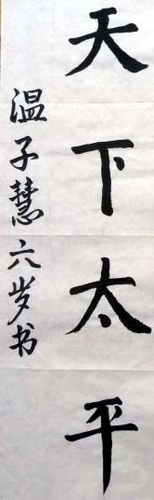 天下太平
温子慧六岁书